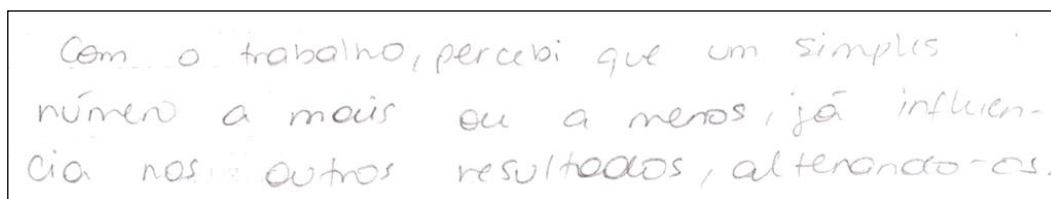 Com o trabalho, percebi que um simples
número a mais ou a menos, já influen-
cia nos outros resultados, alterando-os.